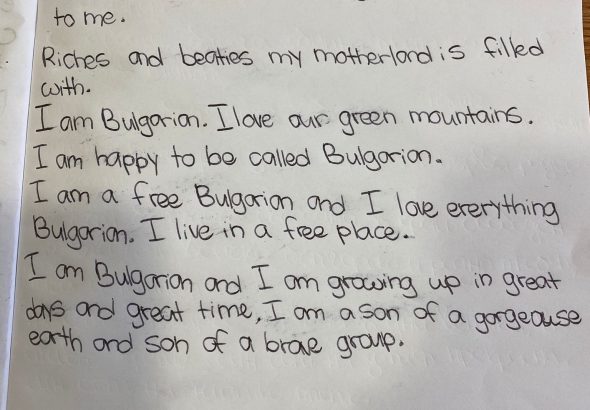 to me.
Riches and beaties my motherland is filled
with.
I am Bulgarian. I love our green mountains.
I am happy to be called Bulgarian.
I am a free Bulgarian and I love ererything
Bulgarian. I live in a free place.
I am Bulgarian and I am growing up in great
days and great time, I am a son of a gorgeouse
earth and son of a brave group.